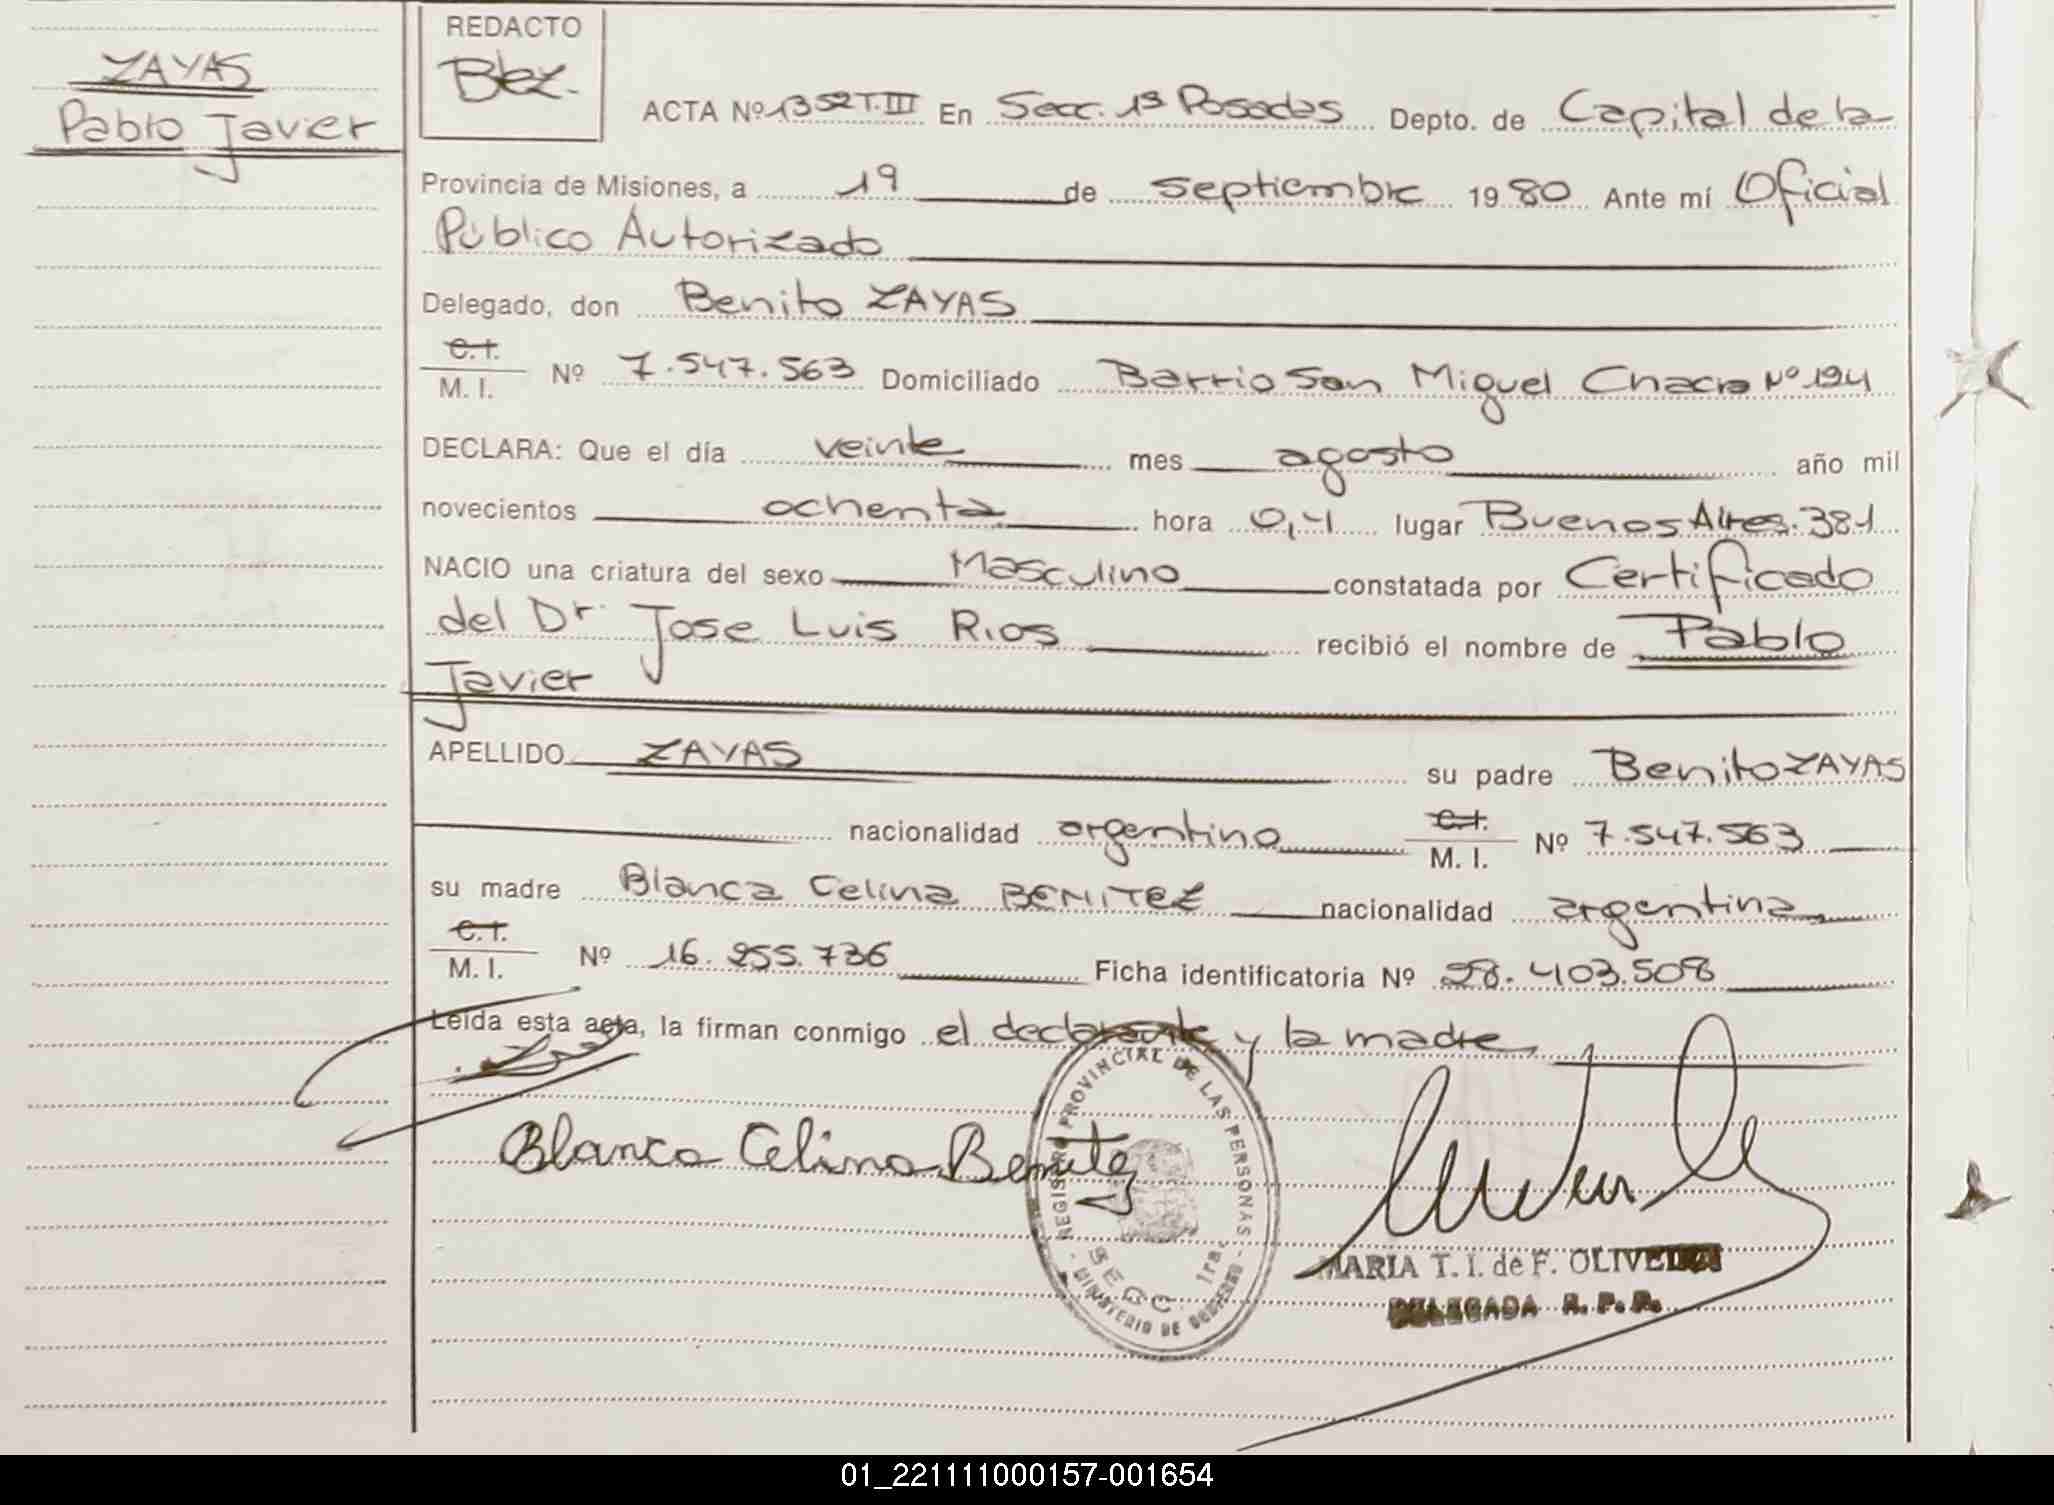 ZAYAS
Pablo Javier
REDACTO
Blez.
ACTA Nº 1352 T.III En Secc. 1ª Posadas Depto. de Capital de la
Provincia de Misiones, a 19 de septiembre 1980 Ante mí Oficial
Público Autorizado
Delegado, don Benito ZAYAS
C.I.
M. I. Nº 7.547.563 Domiciliado Barrio San Miguel Chacra Nº 194
DECLARA: Que el día veinte mes agosto año mil
novecientos ochenta hora 0,4 lugar Buenos Aires. 381
NACIO una criatura del sexo Masculino constatada por Certificado
del Dr. Jose Luis Rios recibió el nombre de Pablo
Javier
APELLIDO ZAYAS su padre Benito ZAYAS
nacionalidad argentino C.I.
M. I. Nº 7.547.563
su madre Blanca Celina BENITEZ nacionalidad argentina
C.I.
M. I. Nº 16.255.736 Ficha identificatoria Nº 28.403.508
Leída esta acta, la firman conmigo el declarante y la madre
Blanca Celina Benitez
REGISTRO PROVINCIAL DE LAS PERSONAS
SECC. 1ra.
- MINISTERIO DE GOBIERNO -
MARIA T. I. de F. OLIVEIRA
DELEGADA R. P. P.
01_221111000157-001654